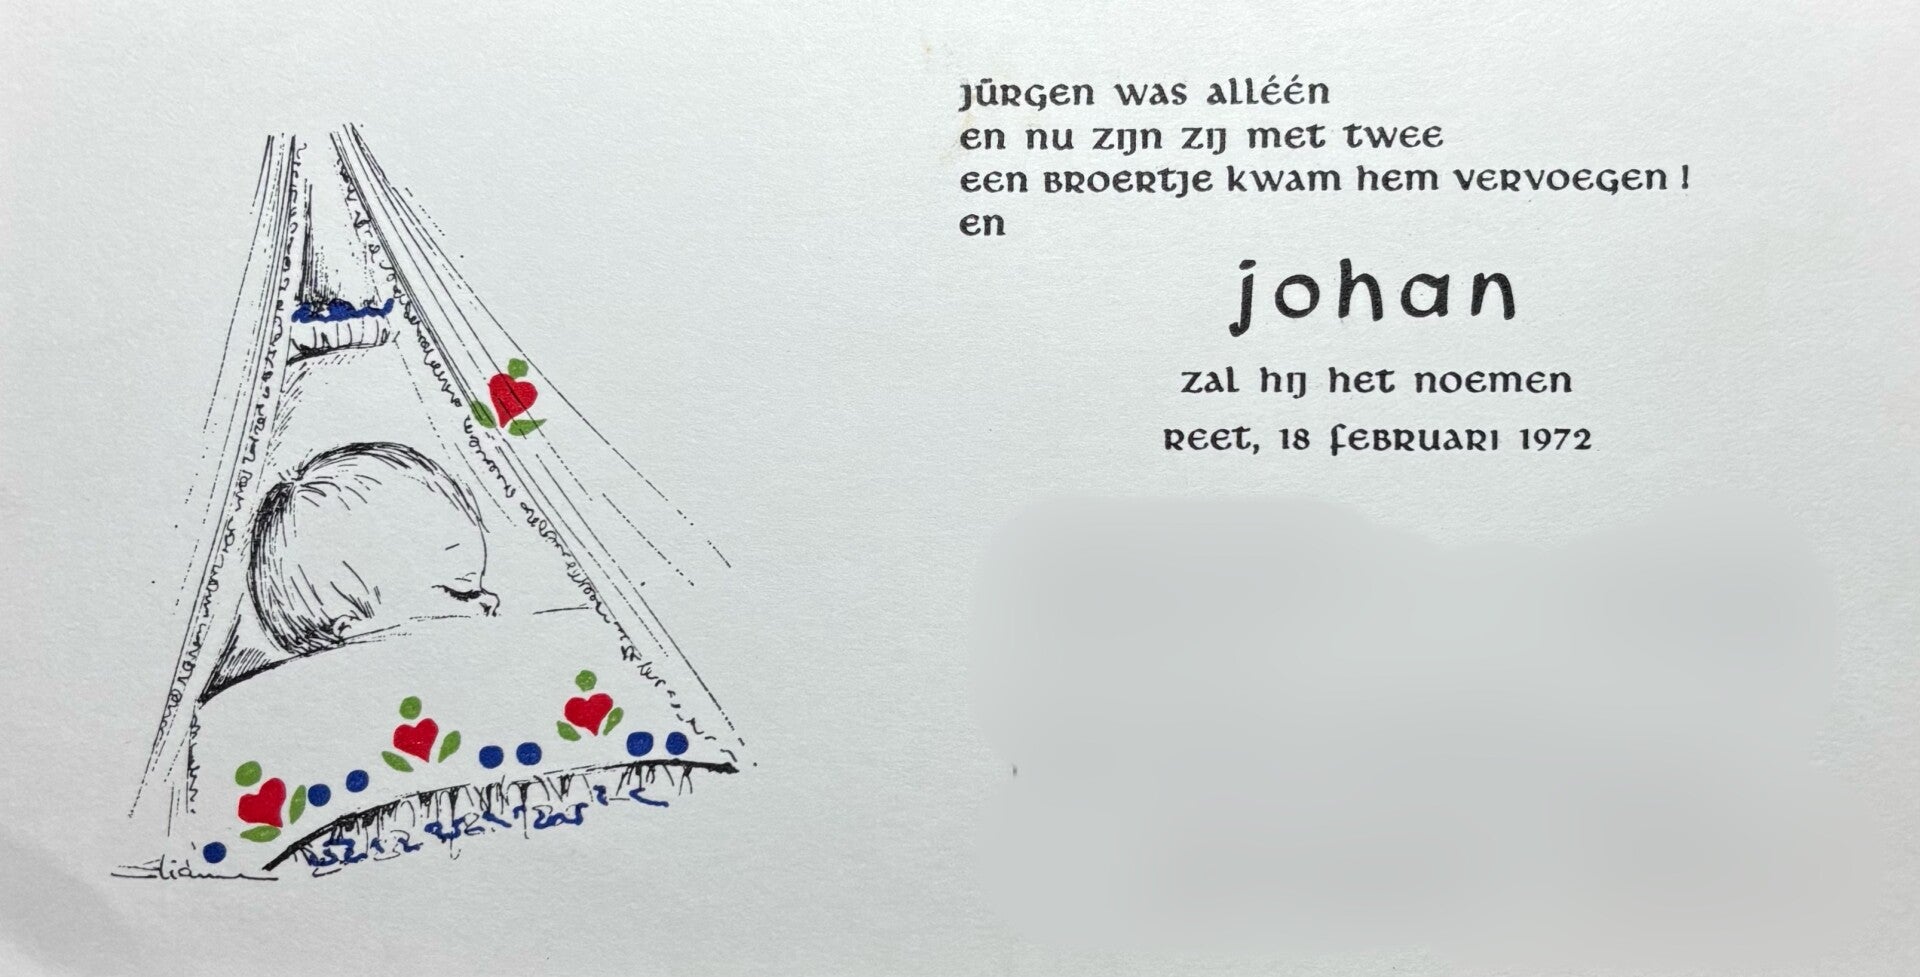 Jürgen was alléén
en nu zijn zij met twee
een broertje kwam hem vervoegen !
en
johan
zal hij het noemen
Reet, 18 februari 1972